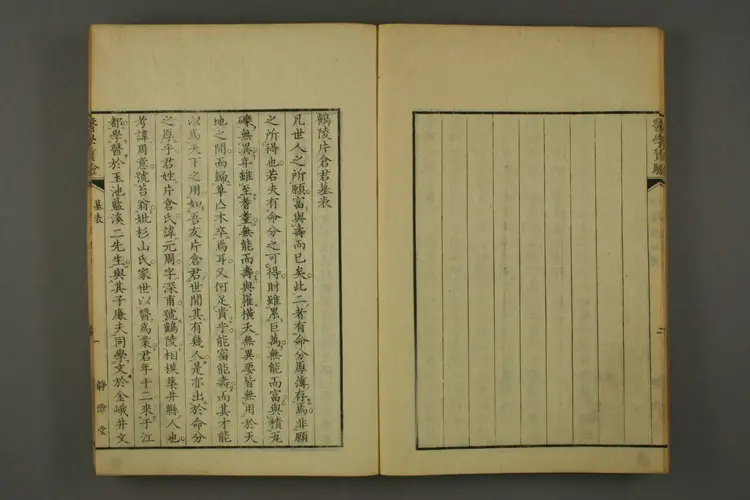 鶴陵片倉君墓表
凡世人之所願富與壽而已矣此二者有命分厚薄存焉非願
之所得也若夫有命分之可得財雖累巨萬無能而富與積瓦
礫無異年雖至耄耋無能而壽與罹橫夭無異要皆無用於天
地之間而編草亾木卒焉耳又何足貴乎能富能壽而其才能
以爲天下之用如吾友片倉君世間其有幾久是亦出於命分
之厚乎君姓片倉氏諱元周字深甫號鶴陵相模築井縣人也
考諱周意號苔翁妣杉山氏家世以醫爲業君年十二來于江
都學醫於玉池藍溪二先生與其子廉夫同學文於金峨井文
醫學質驗
墓表
一
靜儉堂
二